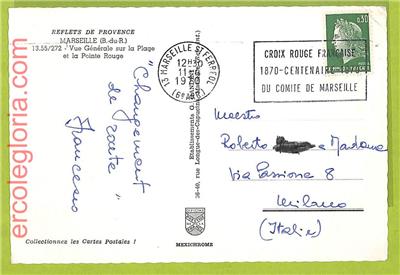 REFLETS DE PROVENCE
MARSEILLE (B.-du-R.)
13.55/272 - Vue Générale sur la Plage
et la Pointe Rouge
13 MARSEILLE ST FERREOL
12H
11
(6e ARR)
CROIX ROUGE FRANÇAISE
1870-CENTENAIRE
DU COMITE DE MARSEILLE
0,30
"Changement
de route"
Francesco
Maestro
Roberto e Madame
Via Passione 8
Milano
(Italie)
Etablissements G.
36-40, rue Longue-des-Capucins
MEXICHROME
Collectionnez les Cartes Postales !
ercolegloria.com